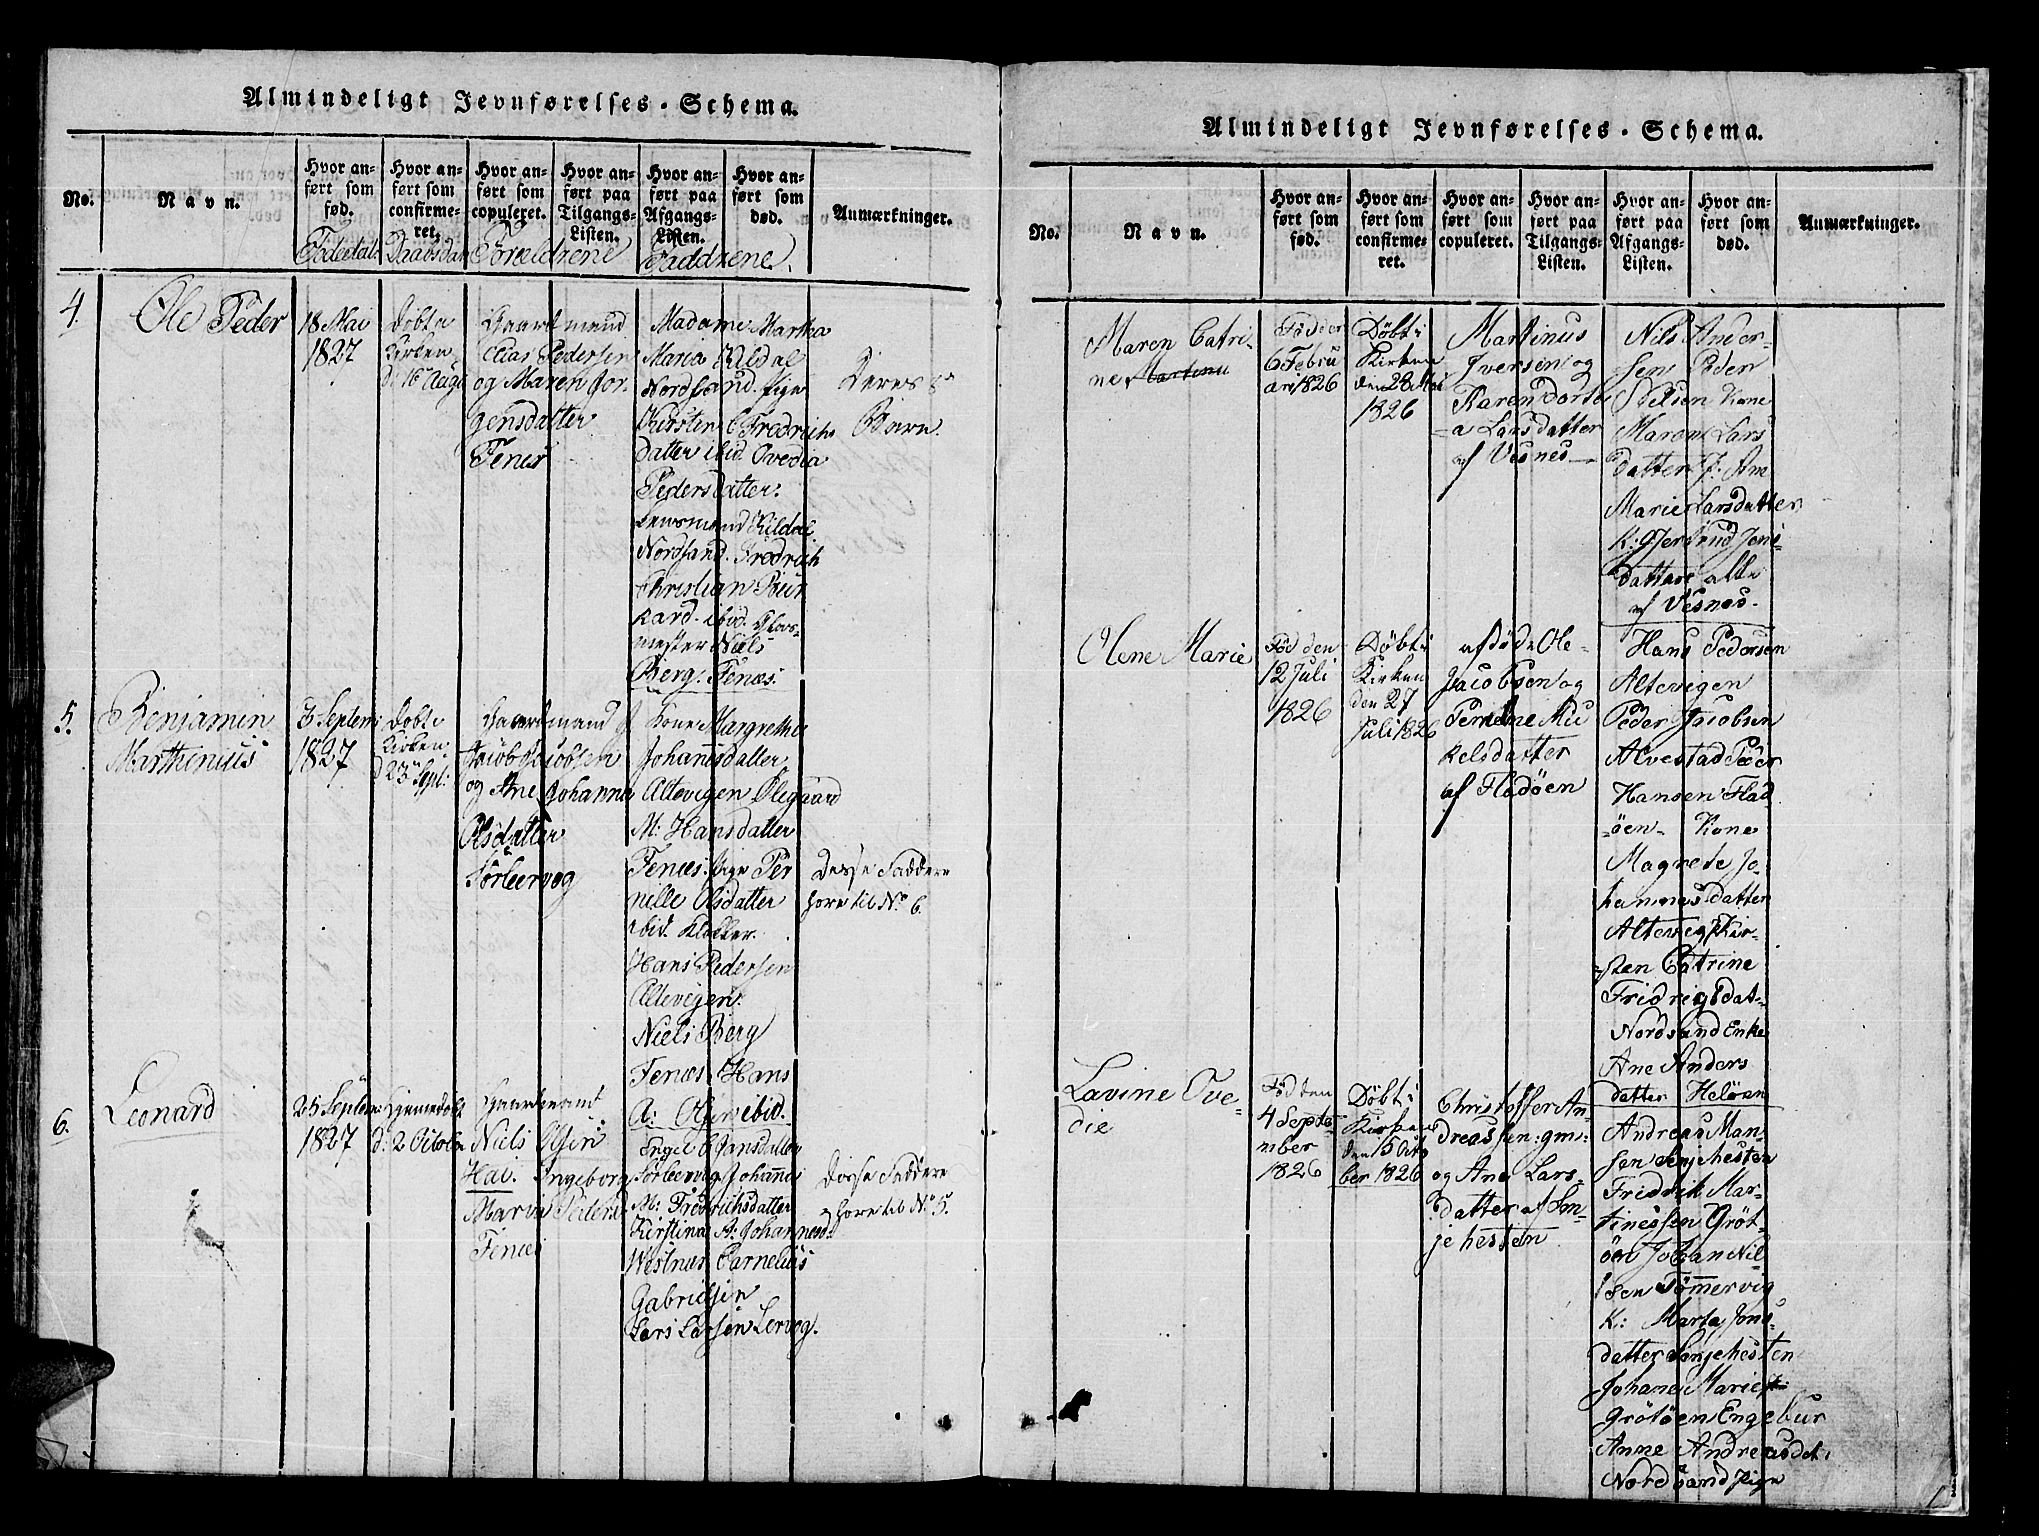 Almindeligt Jevnførelses-Schema.
No.
Navn.
Hvor an-
ført som
fød.
Hvor an-
ført som
confirme-
ret.
Hvor an-
ført som
copuleret.
Hvor an-
ført paa
Tilgangs-
Listen.
Hvor an-
ført paa
Afgangs-
Listen.
Hvor an-
ført som
død.
Anmærkninger.
Forældrene
Faddrene.
4.
Ole Peder
18 Mai
1827
Døbt i
Kirken
d: 16 Aug
Gaardmand
Elias Pedersen
og Maren Jor-
gensdatter
Fenes
Madame Martha
Maria Kildal
Nordsand. Pige
Kirsten C Fredrichs
datter ibid. Ovedia
Pedersdatter.
Lensmand Kildal
Nordsand. Fredrich
Christian Buur
kard. ibid.
mester Niels
Berg. Fenæs.
Deres
Barn.
5.
Benjamin
Marthinus
3 Septem:
1827
Døbt i
Kirken
d 23 Sept:
Gaardmand
Jacob Jacobsen
og Ane Johanna
Olsdatter
Sørleervog
Kone Margrethe
Johannsdatter
Altevigen Olegaard
M: Hansdatter
Fenæs. Pige Per
nille Olsdatter
ibid. Klokker.
Hans Pedersen
Altevigen.
Niels Berg
Fenæs. Hans
A: Olsen ibid.
Desse Faddere
høre til No 6.
6.
Leonard
25 Septem:
1827
Hjemedøbt
d: 2 October
Gaardmand
Niels Olsen
Hav. Ingeborg
Maria Peders
Fenæs
Engel C Hansdatter
Sørleervog Johanna
M: Fredrichsdatter
Kirstina A: Johannesd:
Westnæs Carnelius
Gabrielsen
Lars Larsen Lervog.
Desse Faddere
høre til No 5.
Almindeligt Jevnførelses-Schema.
No.
Navn.
Hvor an-
ført som
fød.
Hvor an-
ført som
confirme-
ret.
Hvor an-
ført som
copuleret.
Hvor an-
ført paa
Tilgangs-
Listen.
Hvor an-
ført paa
Afgangs-
Listen.
Hvor an-
ført som
død.
Anmærkninger.
Maren Catri-
ne Martinu
Fød den
6 Febru
ari 1826
Døbt i
Kirken
den 28 Mai
1826
Martinus
Iversen og
Karen Dorte
a Larsdatter
af Vesnes
Nils Ander-
sen Peder
Nilsen Kone
Maren Lars
datter J: Ane
Marie Larsdatter
K: Gjertrud Jens-
datter alle
af Vesnes.
Olene Marie
Fød den
12 Juli
1826
Døbt i
Kirken
den 27
Juli 1826
afdøde Ole
Jacobsen og
Perneline Mu
kelsdatter
af Fladøen
Hans Pedersen
Altevigen
Peder Jacobsen
Alvestad Peder
Hansen Flad
øen Kone
Magrete Jo-
hannesdatter
Altevig Kir-
sten Catrine
Fridrigsdat-
Nordsand Enke
Ane Anders
datter Heløen
Lavine Ove-
die
Fød den
4 Septe-
mber
1826
Døbt i
Kirken
den 15 Octo
ber 1826
Christoffer An-
dreassen: gm:
og Ane Lars-
datter af Sen-
jehesten
Andreas Man-
sen Senjehesten
Fredrik Mar-
tinessen Grøt-
øen Johan Nil
sen Tømmervig
K: Marta Jons-
datter Senjehesten
Johane Marie
Grøtøen Engebur
Anne Andreasdt:
Nordsand Pige